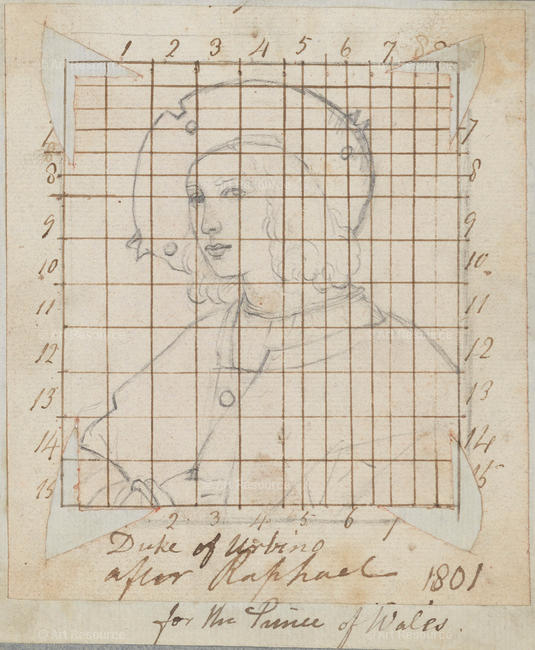 1 2 3 4 5 6 7 8
7 7
8 8
9 9
10 10
11 11
12 12
13 13
14 14
15 15
2 3 4 5 6 7
Duke of Urbino
after Raphael 1801
for the Prince of Wales.
© Art Resource